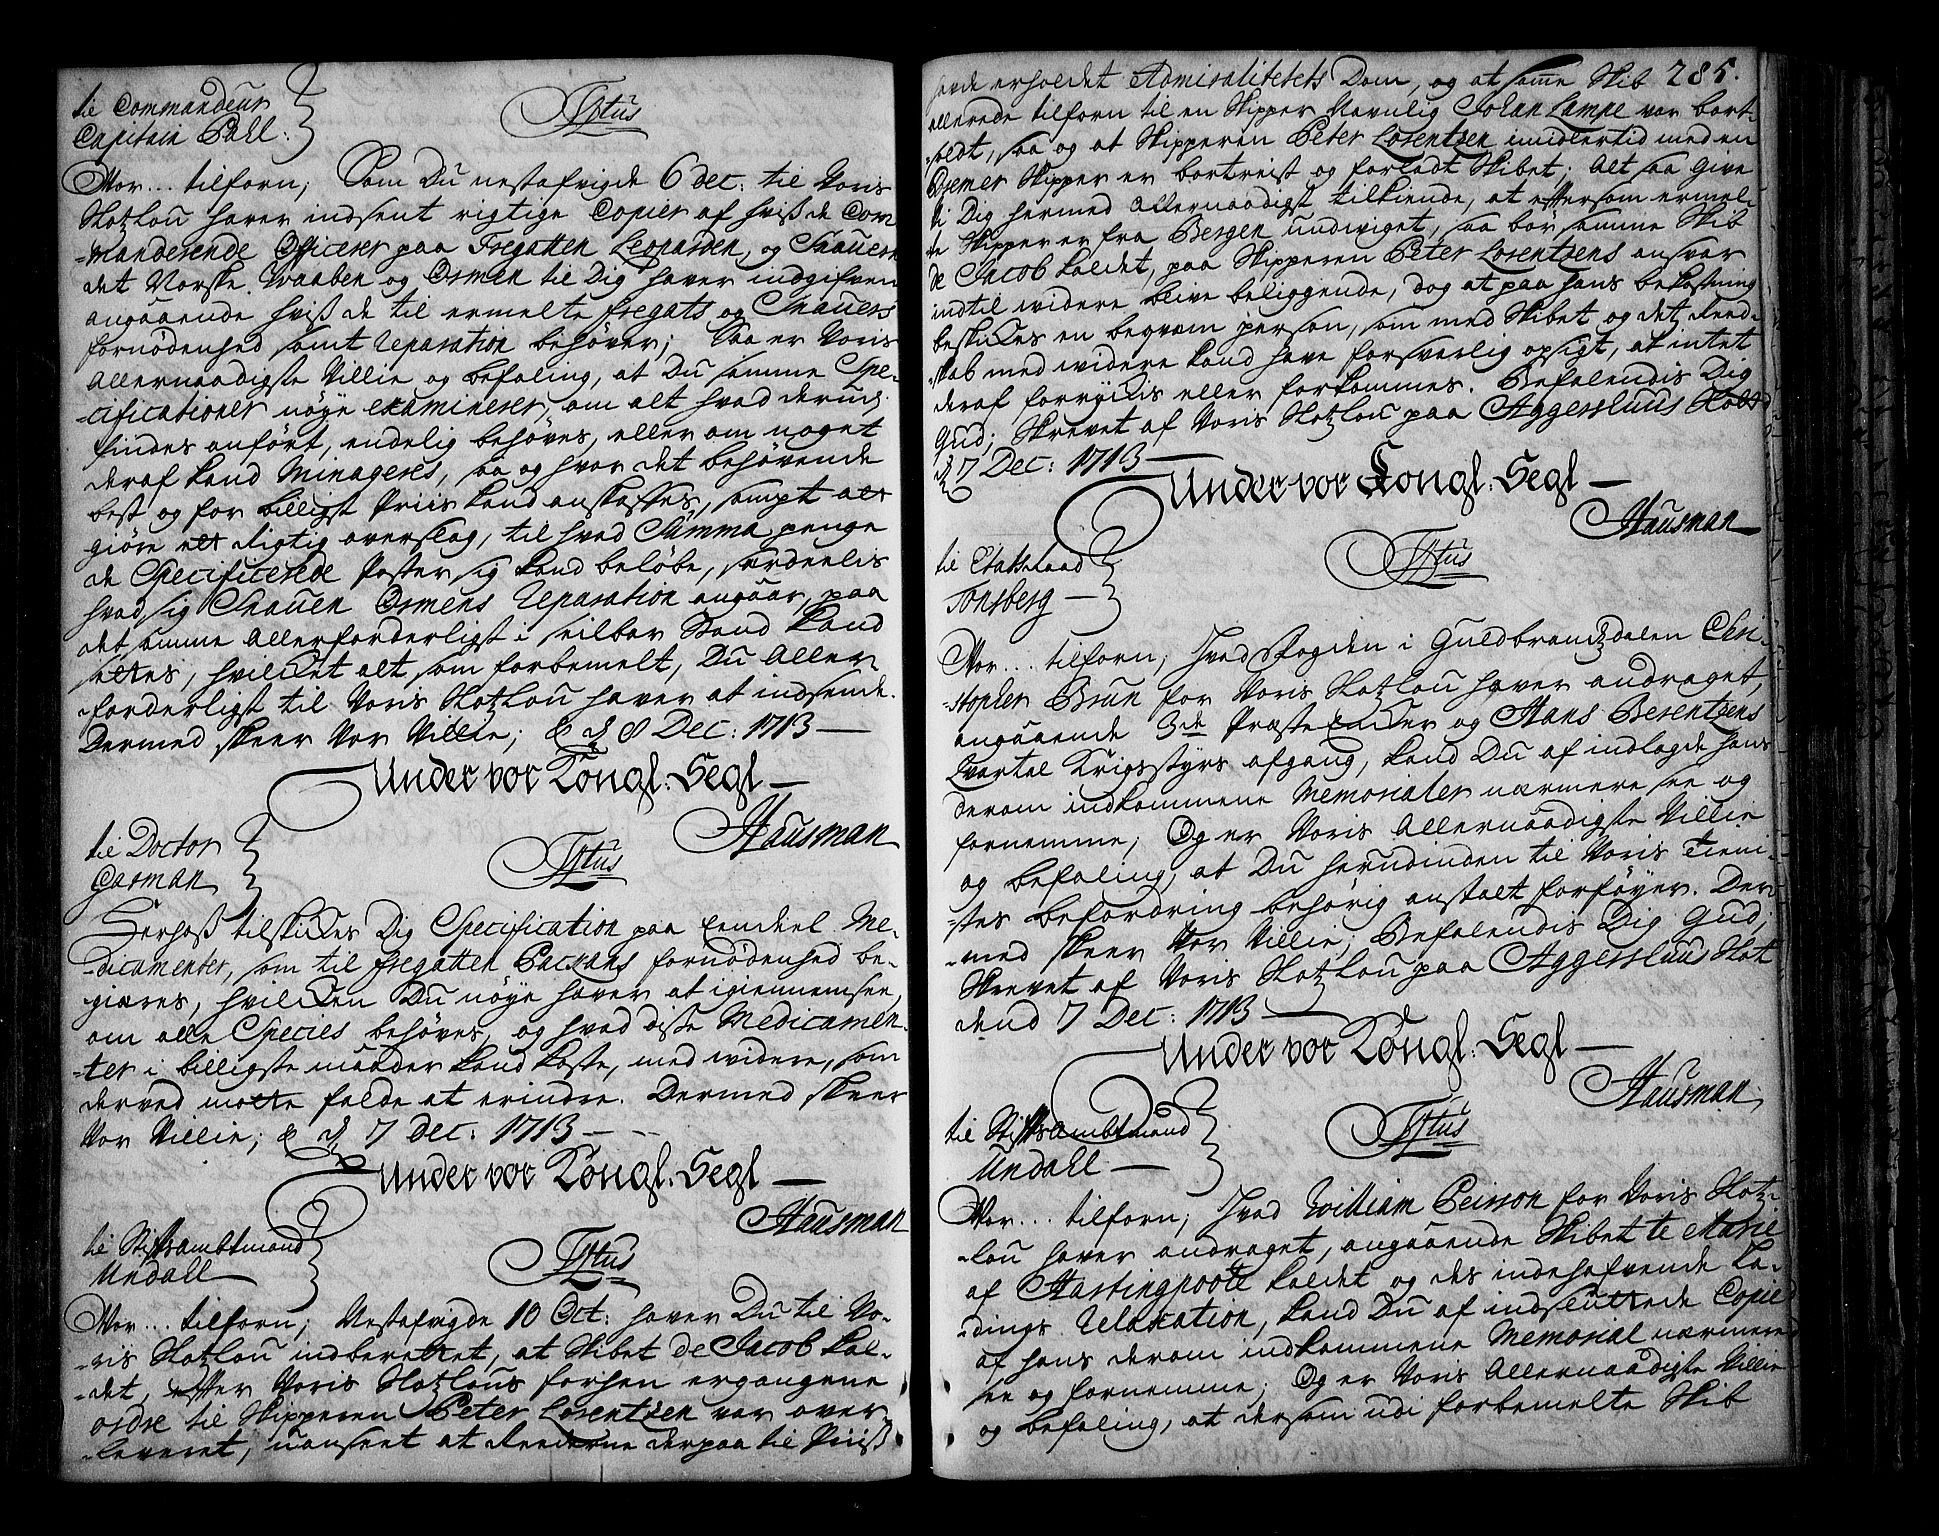 til Commandeur
Capitain Pahl:
Ttus
Vor... tilforn; Som Du nestafvigde 6 dec: til Voris
Slotzlou haver indsent rigtige Copier af hviss de Com-
-manderende Officerer paa Fregatten Leoparden, og Snauern
det Norske Vaaben og Ormen til Dig haver indgifven
angaaende hviss de til ermelte fregats og Snauers
fornødenhed samt reparation behøver; Saa er Voris
Allernaadigste Villie og befaling, at Du samme Spe-
-cificationer nøye examinerer, om alt hvad derudj
findes anført, endelig behøves, eller om noget
deraf kand Minageres, saa og hvor det behøvende
best og for billigst Priis kand anskaffes, sampt att
giøre ett Rigtig overslag, til hvad Summa penge
de Specificerede Poster sig kand beløbe, særdeelis
hvad sig Snauen Ormens Reparation angaar, paa
det samme Allerforderligst i seilbar Stand kand
settes, hvilcket alt som forbemelt, Du Aller-
-forderligst til Voris Slotzlou haver at indsende.
Dermed skeer Vor Villie; & d 8 Dec: 1713
Under vor Kongl: Segl
Hausman
til Doctor
Garman
Ttus
Herhoss tilskickes Dig Specification paa Eendeel Me-
-dicamenter, som til fregatten Packans fornødenhed be-
giæres, hvilcken Du nøye haver at igiennemsee,
om alle Species behøves, og hvad disse Medicamen-
-ter i billigste maader kand koste, med widere, som
derved motte falde at erindre. Dermed skeer
Vor Villie; & d 7 dec: 1713
Under vor Kongl: Segl
Hausman
til Stiftsambtmand
Undall
Ttus
Vor... tilforn; Nestafvigde 10 Oct: haver Du til Vo-
-ris Slotzlou indberettet, at Skibet de Jacob kal-
-det, efter Voris Slotzlous forhen ergangene
ordre til Skipperen Peter Lorentzen var over
-leveret, uanseet at Reederne derpaa til Priiss
havde erholdet Admiralitetets Dom, og at samme Skib 285.
allerede tilforn til en Skipper Navnlig Johan Lampe var bort-
-soldt, saa og at Skipperen Peter Lorentzen imidlertid med en
Bremer Skipper er bortreist og forladt Skibet; Alt saa give
Vi Dig hermed Allernaadigst tilkiende, at eftersom ermel-
te Skipper er fra Bergen undviget, saa bør samme Skib
de Jacob kaldet, paa Skipperen Peter Lorentzens ansvar
indtil widere blive beliggende, dog at paa hans bekostning
beskickes en beqvem person, som med Skibet og det Reed-
-skab med widere kand have forsvarlig opsigt, at intet
deraf forryckis eller forkommes. Befalendis Dig
Gud; Skrevet af Voris Slotzlou paa Aggershuus Slott
d 7 Dec: 1713
Under vor Kongl: Segl
Hausman
til Etatsraad
Tonsberg
Ttus
Vor... tilforn; Hvad Fogden i Guldbrandzdalen Chri-
-stopher Brun for Voris Slotzlou haver andraget,
angaaende 3de Præste Encker og Hans Berentzens
Qvartal Krigsstyrs afgang, kand Du af indlagde hans
derom indkommene Memorialer nærmere see og
fornemme; Og er Voris Allernaadigste Villie
og befaling, at Du herudinden til Voris Tieni-
-stes befordring behørig anstalt forføyer. Der-
-med skeer Vor Villie; Befalendis Dig Gud;
Skrevet af Voris Slotzlou paa Aggershuus Slot
dend 7 Dec: 1713
Under vor Kongl: Segl
Hausman
til Stiftsambtmand
Undall
Ttus
Vor... tilforn; Hvad William Peirson for Voris Slotz-
-lou haver andraget, angaaende Skibet te Marie
af Hastingpoole kaldet og des indehafvende La-
-dings Relaxation, kand Du af indsluttede Copie
af hans derom indkommene Memorial nærmere
see og fornemme; Og er Voris Allernaadigste Villie
og befaling, at dersom udi forbemelte Skib